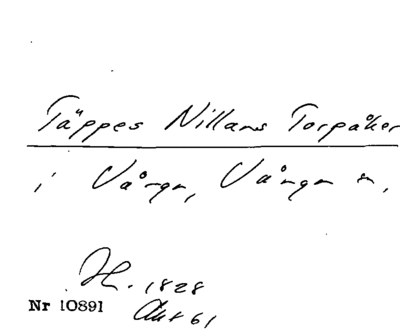 Täppes Nillans Torpåker
i Vånga, Vånga sn,
H. 1828
Nr 10891 Akt 61